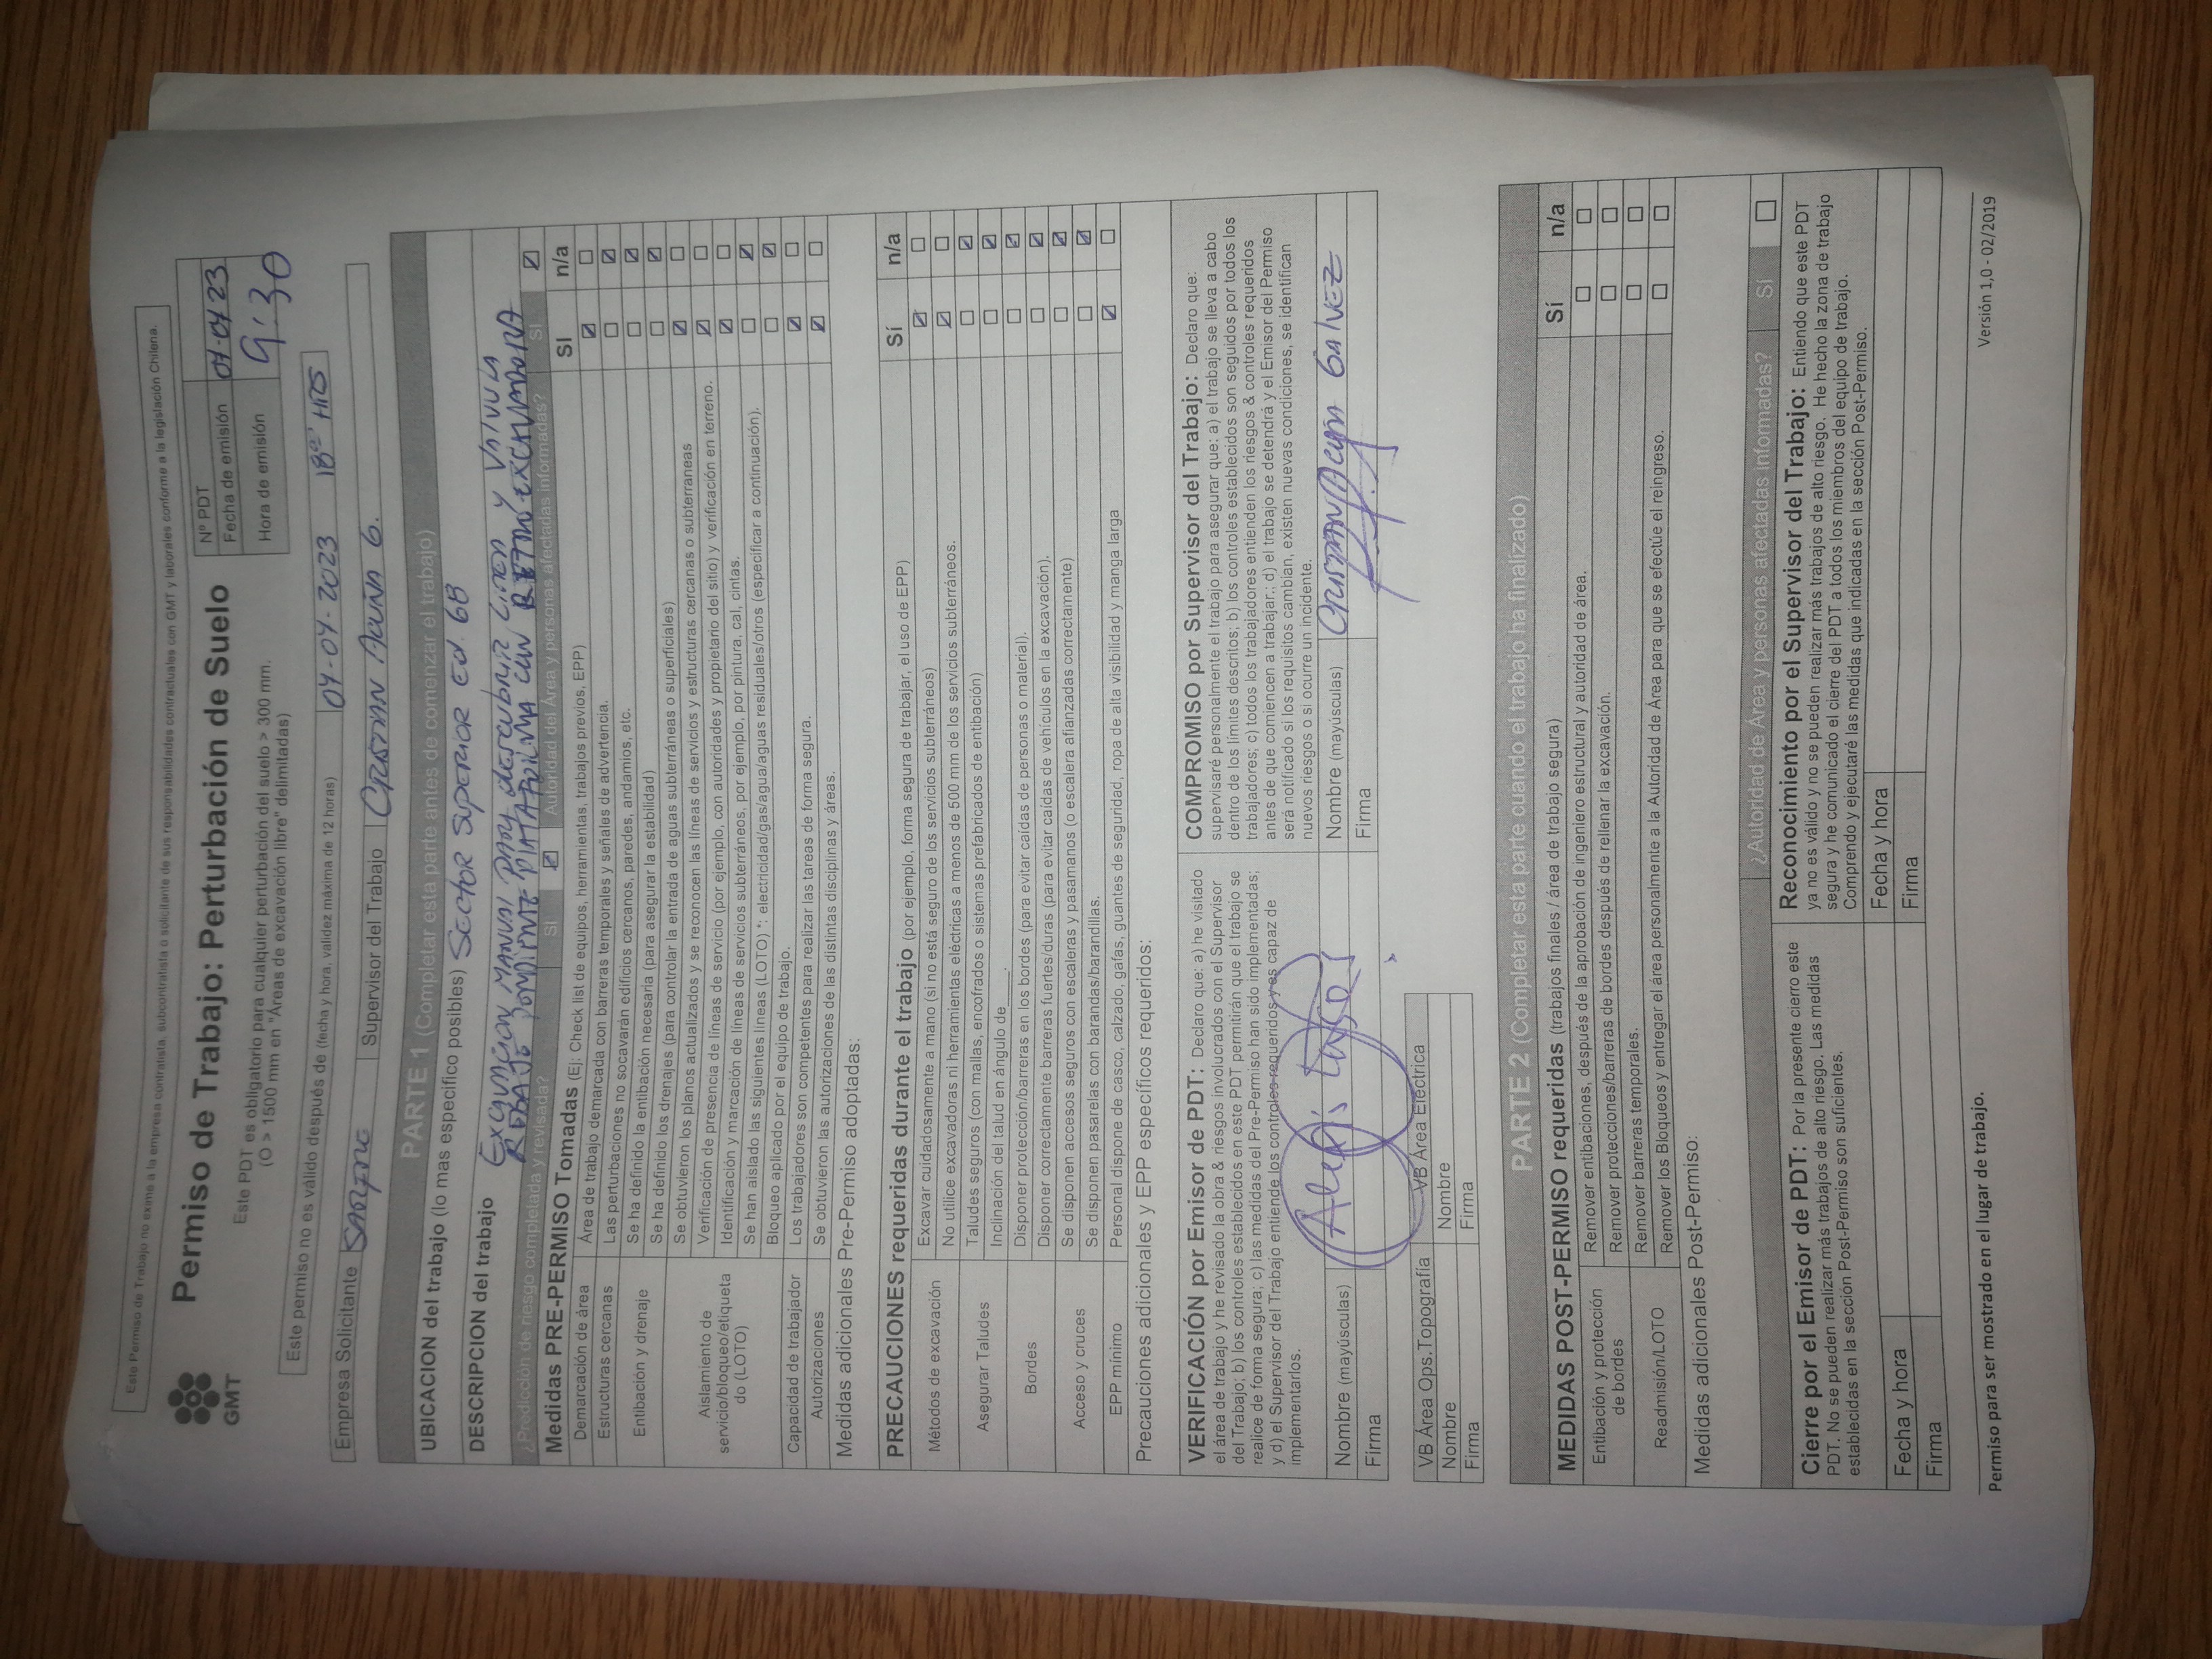 Este Permiso de Trabajo no exime a la empresa contratista, subcontratista o solicitante de sus responsabilidades contractuales con GMT y laborales conforme a la legislación Chilena.
GMT
Permiso de Trabajo: Perturbación de Suelo
Este PDT es obligatorio para cualquier perturbación del suelo > 300 mm.
(O > 1500 mm en "Áreas de excavación libre" delimitadas)
Nº PDT
Fecha de emisión 04-04 23
Hora de emisión 9:30
Este permiso no es válido después de (fecha y hora, validez máxima de 12 horas) 04-04-2023 18:00 HRS
Empresa Solicitante Supervisor del Trabajo Cristian Acuña G.
PARTE 1 (Completar esta parte antes de comenzar el trabajo)
UBICACION del trabajo (lo mas especifico posibles) SECTOR SUPERIOR Ed. 6B
DESCRIPCION del trabajo Excavacion manual para descubrir linea y valvula
¿Predicción de riesgo completada y revisada? SI ☑ Autoridad del Área y personas afectadas informadas? SI ☑
Medidas PRE-PERMISO Tomadas (Ej: Check list de equipos, herramientas, trabajos previos, EPP) SI n/a
Demarcación de área Área de trabajo demarcada con barreras temporales y señales de advertencia. ☑ ☐
Estructuras cercanas Las perturbaciones no socavarán edificios cercanos, paredes, andamios, etc. ☐ ☑
Entibación y drenaje Se ha definido la entibación necesaria (para asegurar la estabilidad) ☐ ☑
Se ha definido los drenajes (para controlar la entrada de aguas subterráneas o superficiales) ☐ ☑
Aislamiento de servicio/bloqueo/etiquetado (LOTO) Se obtuvieron los planos actualizados y se reconocen las líneas de servicios y estructuras cercanas o subterraneas ☑ ☐
Verificación de presencia de líneas de servicio (por ejemplo, con autoridades y propietario del sitio) y verificación en terreno. ☑ ☐
Identificación y marcación de líneas de servicios subterráneos, por ejemplo, por pintura, cal, cintas. ☑ ☐
Se han aislado las siguientes líneas (LOTO) *: electricidad/gas/agua/aguas residuales/otros (especificar a continuación). ☐ ☑
Bloqueo aplicado por el equipo de trabajo. ☐ ☑
Capacidad de trabajador Los trabajadores son competentes para realizar las tareas de forma segura. ☑ ☐
Autorizaciones Se obtuvieron las autorizaciones de las distintas disciplinas y áreas. ☑ ☐
Medidas adicionales Pre-Permiso adoptadas:
PRECAUCIONES requeridas durante el trabajo (por ejemplo, forma segura de trabajar, el uso de EPP) Sí n/a
Métodos de excavación Excavar cuidadosamente a mano (si no está seguro de los servicios subterráneos) ☑ ☐
No utilice excavadoras ni herramientas eléctricas a menos de 500 mm de los servicios subterráneos. ☑ ☐
Asegurar Taludes Taludes seguros (con mallas, encofrados o sistemas prefabricados de entibación) ☐ ☑
Inclinación del talud en ángulo de____. ☐ ☑
Bordes Disponer protección/barreras en los bordes (para evitar caídas de personas o material). ☐ ☑
Disponer correctamente barreras fuertes/duras (para evitar caídas de vehículos en la excavación). ☐ ☑
Acceso y cruces Se disponen accesos seguros con escaleras y pasamanos (o escalera afianzadas correctamente) ☐ ☑
Se disponen pasarelas con barandas/barandillas. ☐ ☑
EPP mínimo Personal dispone de casco, calzado, gafas, guantes de seguridad, ropa de alta visibilidad y manga larga ☑ ☐
Precauciones adicionales y EPP específicos requeridos:
VERIFICACIÓN por Emisor de PDT: Declaro que: a) he visitado
el área de trabajo y he revisado la obra & riesgos involucrados con el Supervisor
del Trabajo; b) los controles establecidos en este PDT permitirán que el trabajo se
realice de forma segura; c) las medidas del Pre-Permiso han sido implementadas;
y d) el Supervisor del Trabajo entiende los controles requeridos y es capaz de
implementarlos.
Nombre (mayúsculas)
Firma
COMPROMISO por Supervisor del Trabajo: Declaro que:
supervisaré personalmente el trabajo para asegurar que: a) el trabajo se lleva a cabo
dentro de los límites descritos; b) los controles establecidos son seguidos por todos los
trabajadores; c) todos los trabajadores entienden los riesgos & controles requeridos
antes de que comiencen a trabajar;; d) el trabajo se detendrá y el Emisor del Permiso
será notificado si los requisitos cambian, existen nuevas condiciones, se identifican
nuevos riesgos o si ocurre un incidente.
Nombre (mayúsculas) Cristian Acuña Galvez
Firma
VB Área Ops.Topografía VB Área Eléctrica
Nombre Nombre
Firma Firma
PARTE 2 (Completar esta parte cuando el trabajo ha finalizado)
MEDIDAS POST-PERMISO requeridas (trabajos finales / área de trabajo segura) Sí n/a
Entibación y protección de bordes Remover entibaciones, después de la aprobación de ingeniero estructural y autoridad de área. ☐ ☐
Remover protecciones/barreras de bordes después de rellenar la excavación. ☐ ☐
Readmisión/LOTO Remover barreras temporales. ☐ ☐
Remover los Bloqueos y entregar el área personalmente a la Autoridad de Área para que se efectúe el reingreso. ☐ ☐
Medidas adicionales Post-Permiso:
¿Autoridad de Área y personas afectadas informadas? Sí ☐
Cierre por el Emisor de PDT: Por la presente cierro este
PDT. No se pueden realizar más trabajos de alto riesgo. Las medidas
establecidas en la sección Post-Permiso son suficientes.
Fecha y hora
Firma
Reconocimiento por el Supervisor del Trabajo: Entiendo que este PDT
ya no es válido y no se pueden realizar más trabajos de alto riesgo. He hecho la zona de trabajo
segura y he comunicado el cierre del PDT a todos los miembros del equipo de trabajo.
Comprendo y ejecutaré las medidas que indicadas en la sección Post-Permiso.
Fecha y hora
Firma
Permiso para ser mostrado en el lugar de trabajo. Versión 1,0 - 02/2019